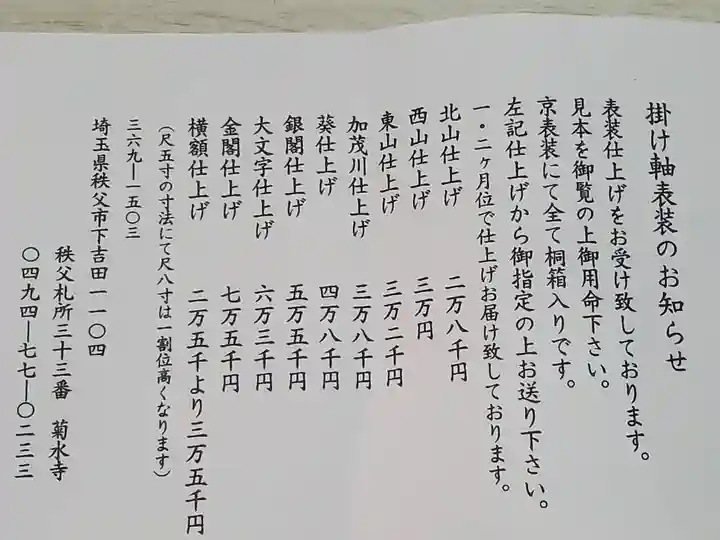 掛け軸表装のお知らせ
表装仕上げをお受け致しております。
見本を御覧の上御用命下さい。
京表装にて全て桐箱入りです。
左記仕上げから御指定の上お送り下さい。
一・二ヶ月位で仕上げお届け致しております。
北山仕上げ 二万八千円
西山仕上げ 三万円
東山仕上げ 三万二千円
加茂川仕上げ 三万八千円
葵仕上げ 四万八千円
銀閣仕上げ 五万五千円
大文字仕上げ 六万三千円
金閣仕上げ 七万五千円
横額仕上げ 二万五千より三万五千円
(尺五寸の寸法にて尺八寸は一割位高くなります)
三六九―一五〇三
埼玉県秩父市下吉田一一〇四
秩父札所三十三番 菊水寺
〇四九四―七七―〇二三三